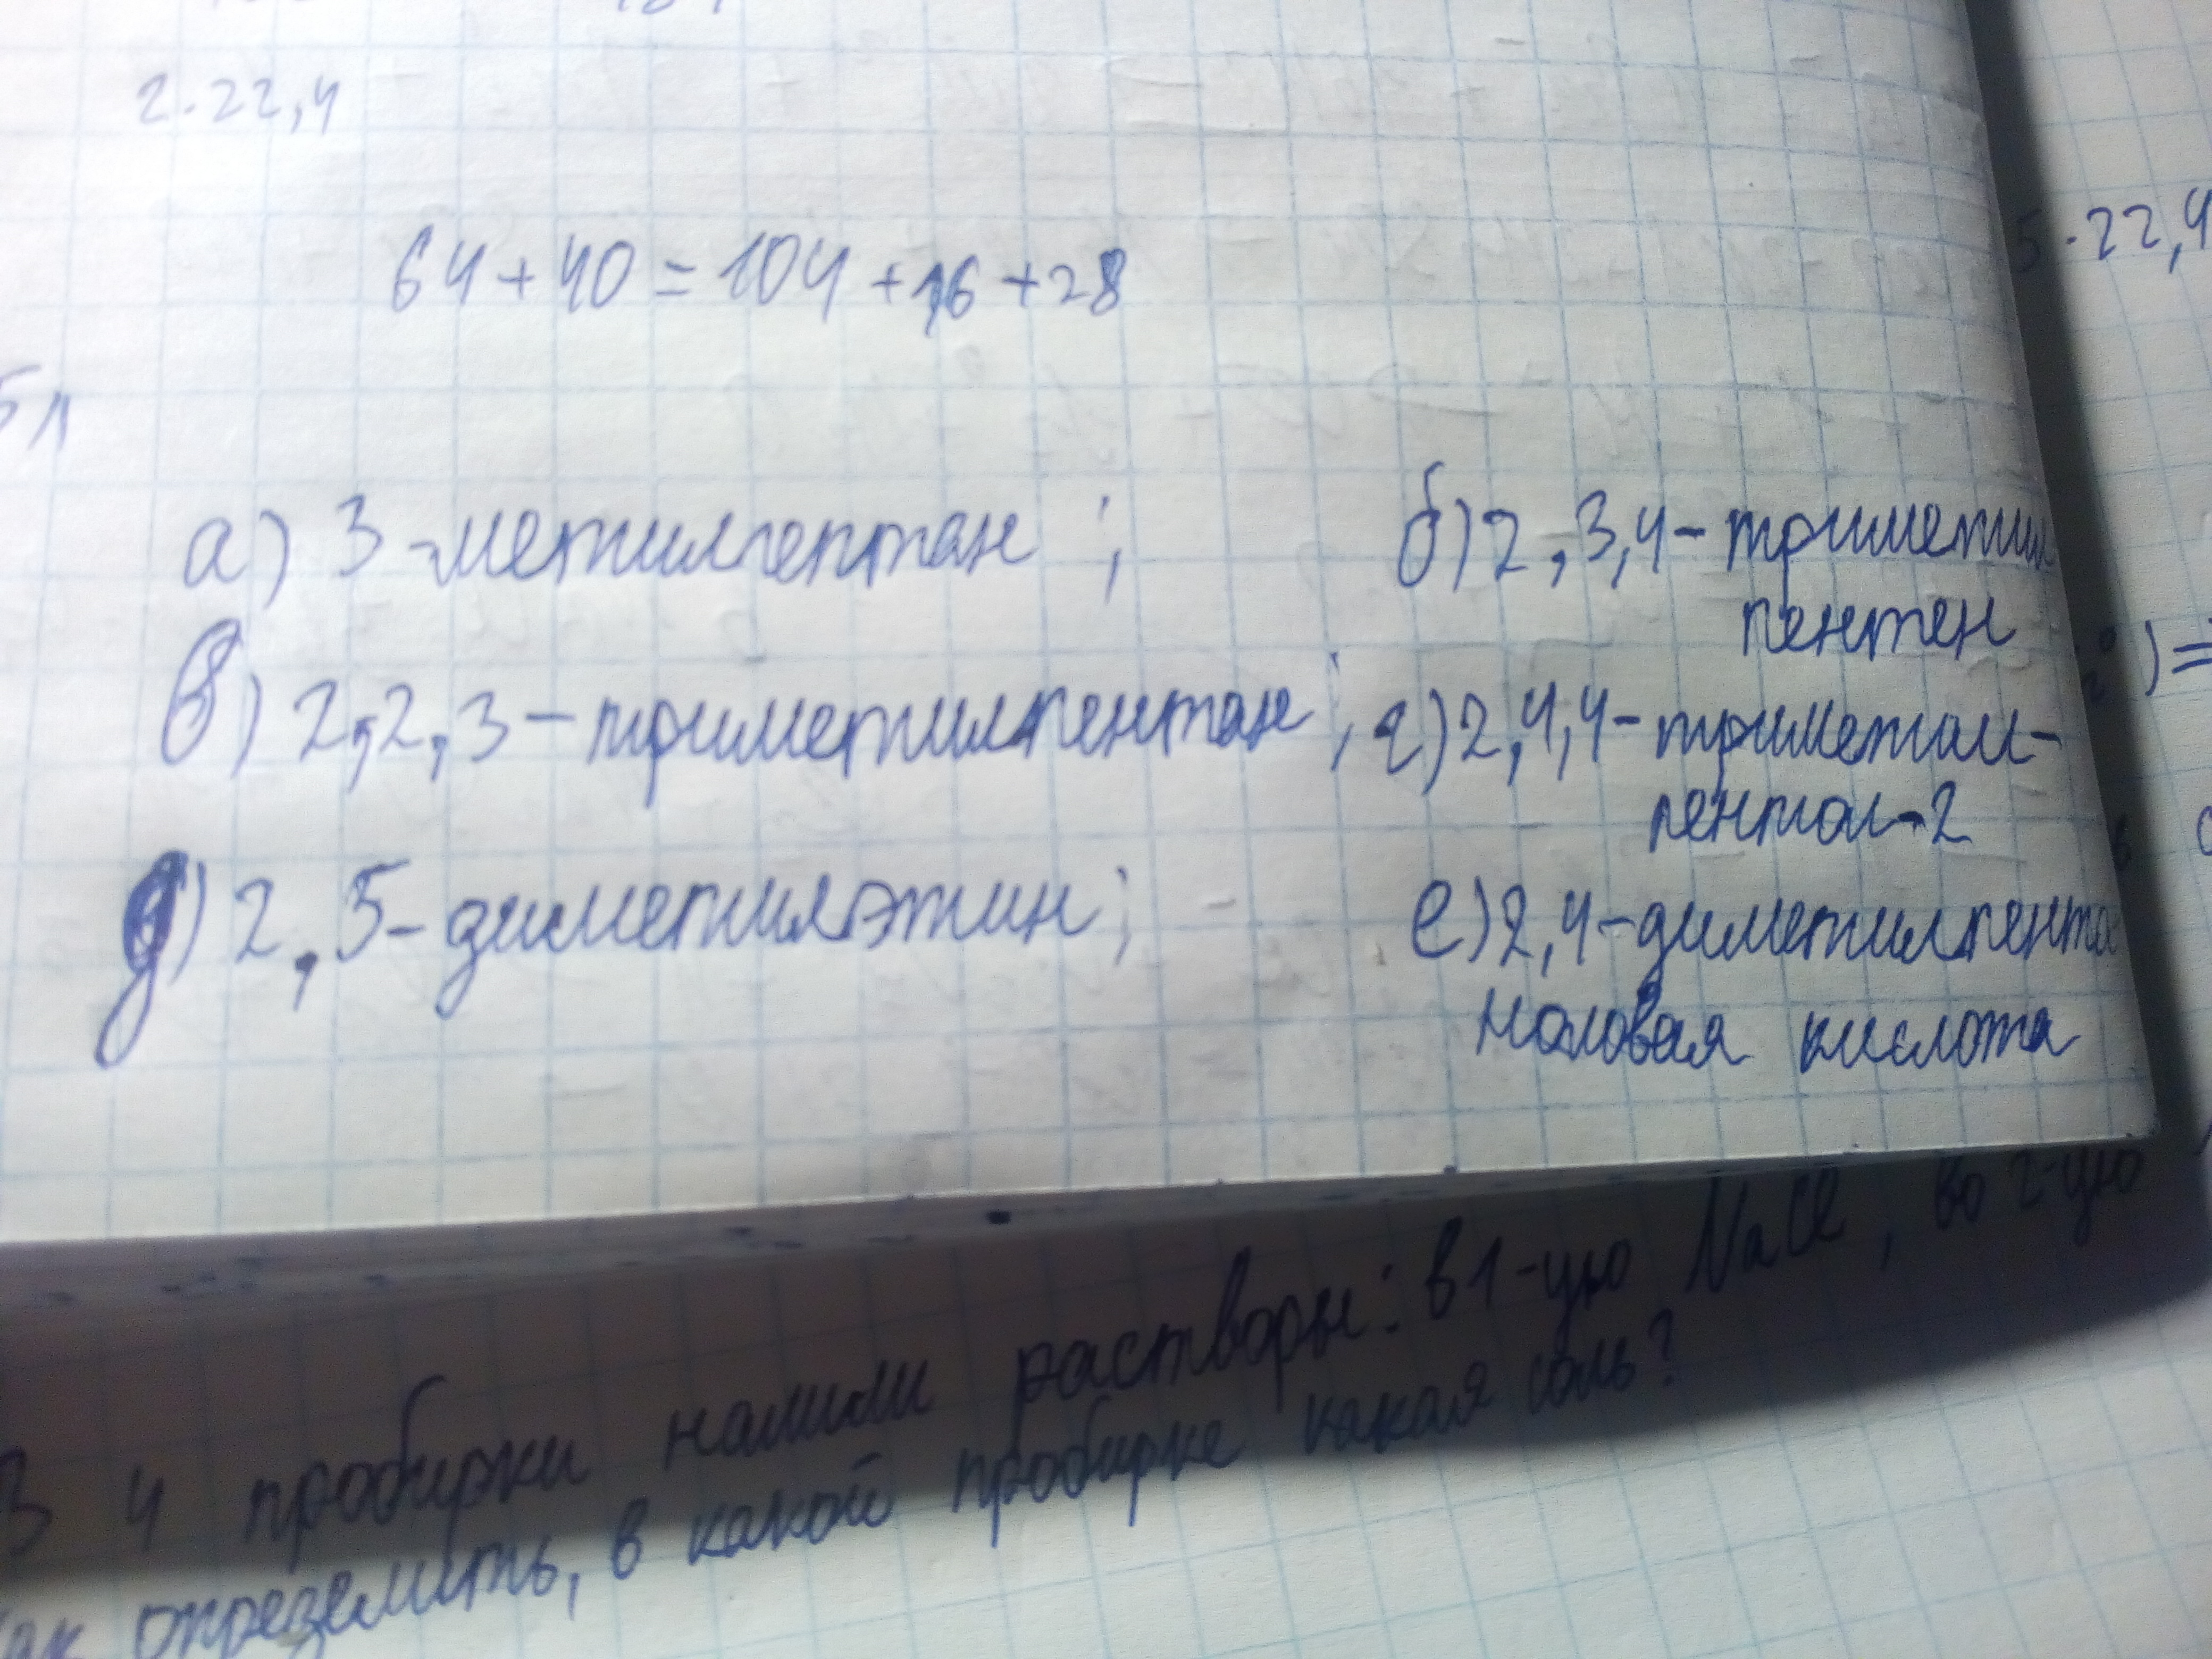 2·22,4
5·22,4
64+40=104+16+28
5л
а) 3-метилгептан ; б) 2,3,4-триметил
пентен
)=
в) 2,2,3-триметилпентан ; г) 2,4,4-триметил-
пентол-2
д) 2,5-диметилэтин ; е) 2,4-диметилпента
ноловая кислота
В 4 пробирки налили растворы: в 1-ую NaCl, во 2-ую
как определить, в какой пробирке какая соль?